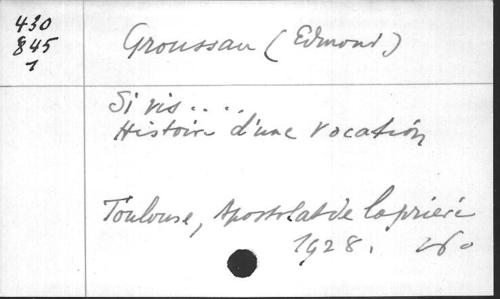 430
845
1
Groussau (Edmond)
Si vis....
Histoire d'une vocation
Toulouse, Apostolat de la prière
1928.